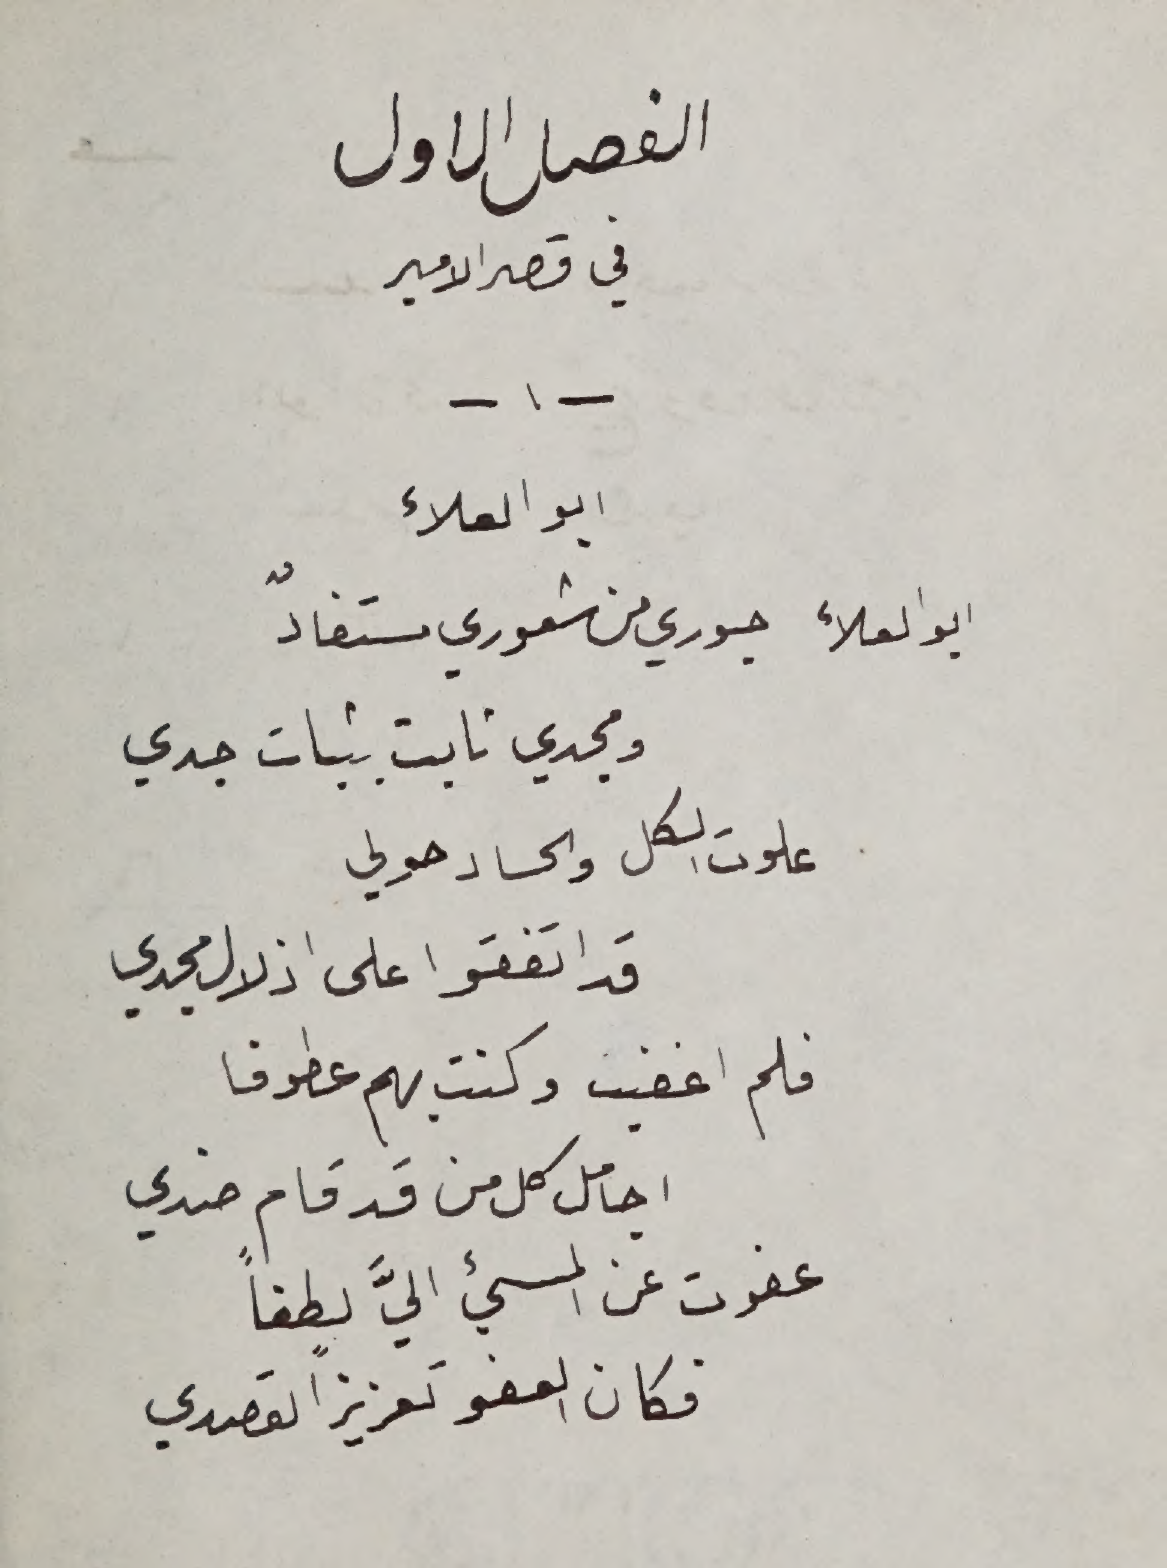 الفصل الاول
في قصر الامير
- ١ -
ابو العلاء
ابو العلاء حبوري من شعوري مستفادٌ
ومجدي ثابت بثبات جدي
علوت الكل والحساد حولي
قد اتفقوا على اذلال مجدي
فلم اغضب وكنت بهم عطوفا
اجامل كل من قد قام ضدي
عفوت عن المسيئ اليَّ لطفاً
فكان العفو تعزيزاً لقصدي